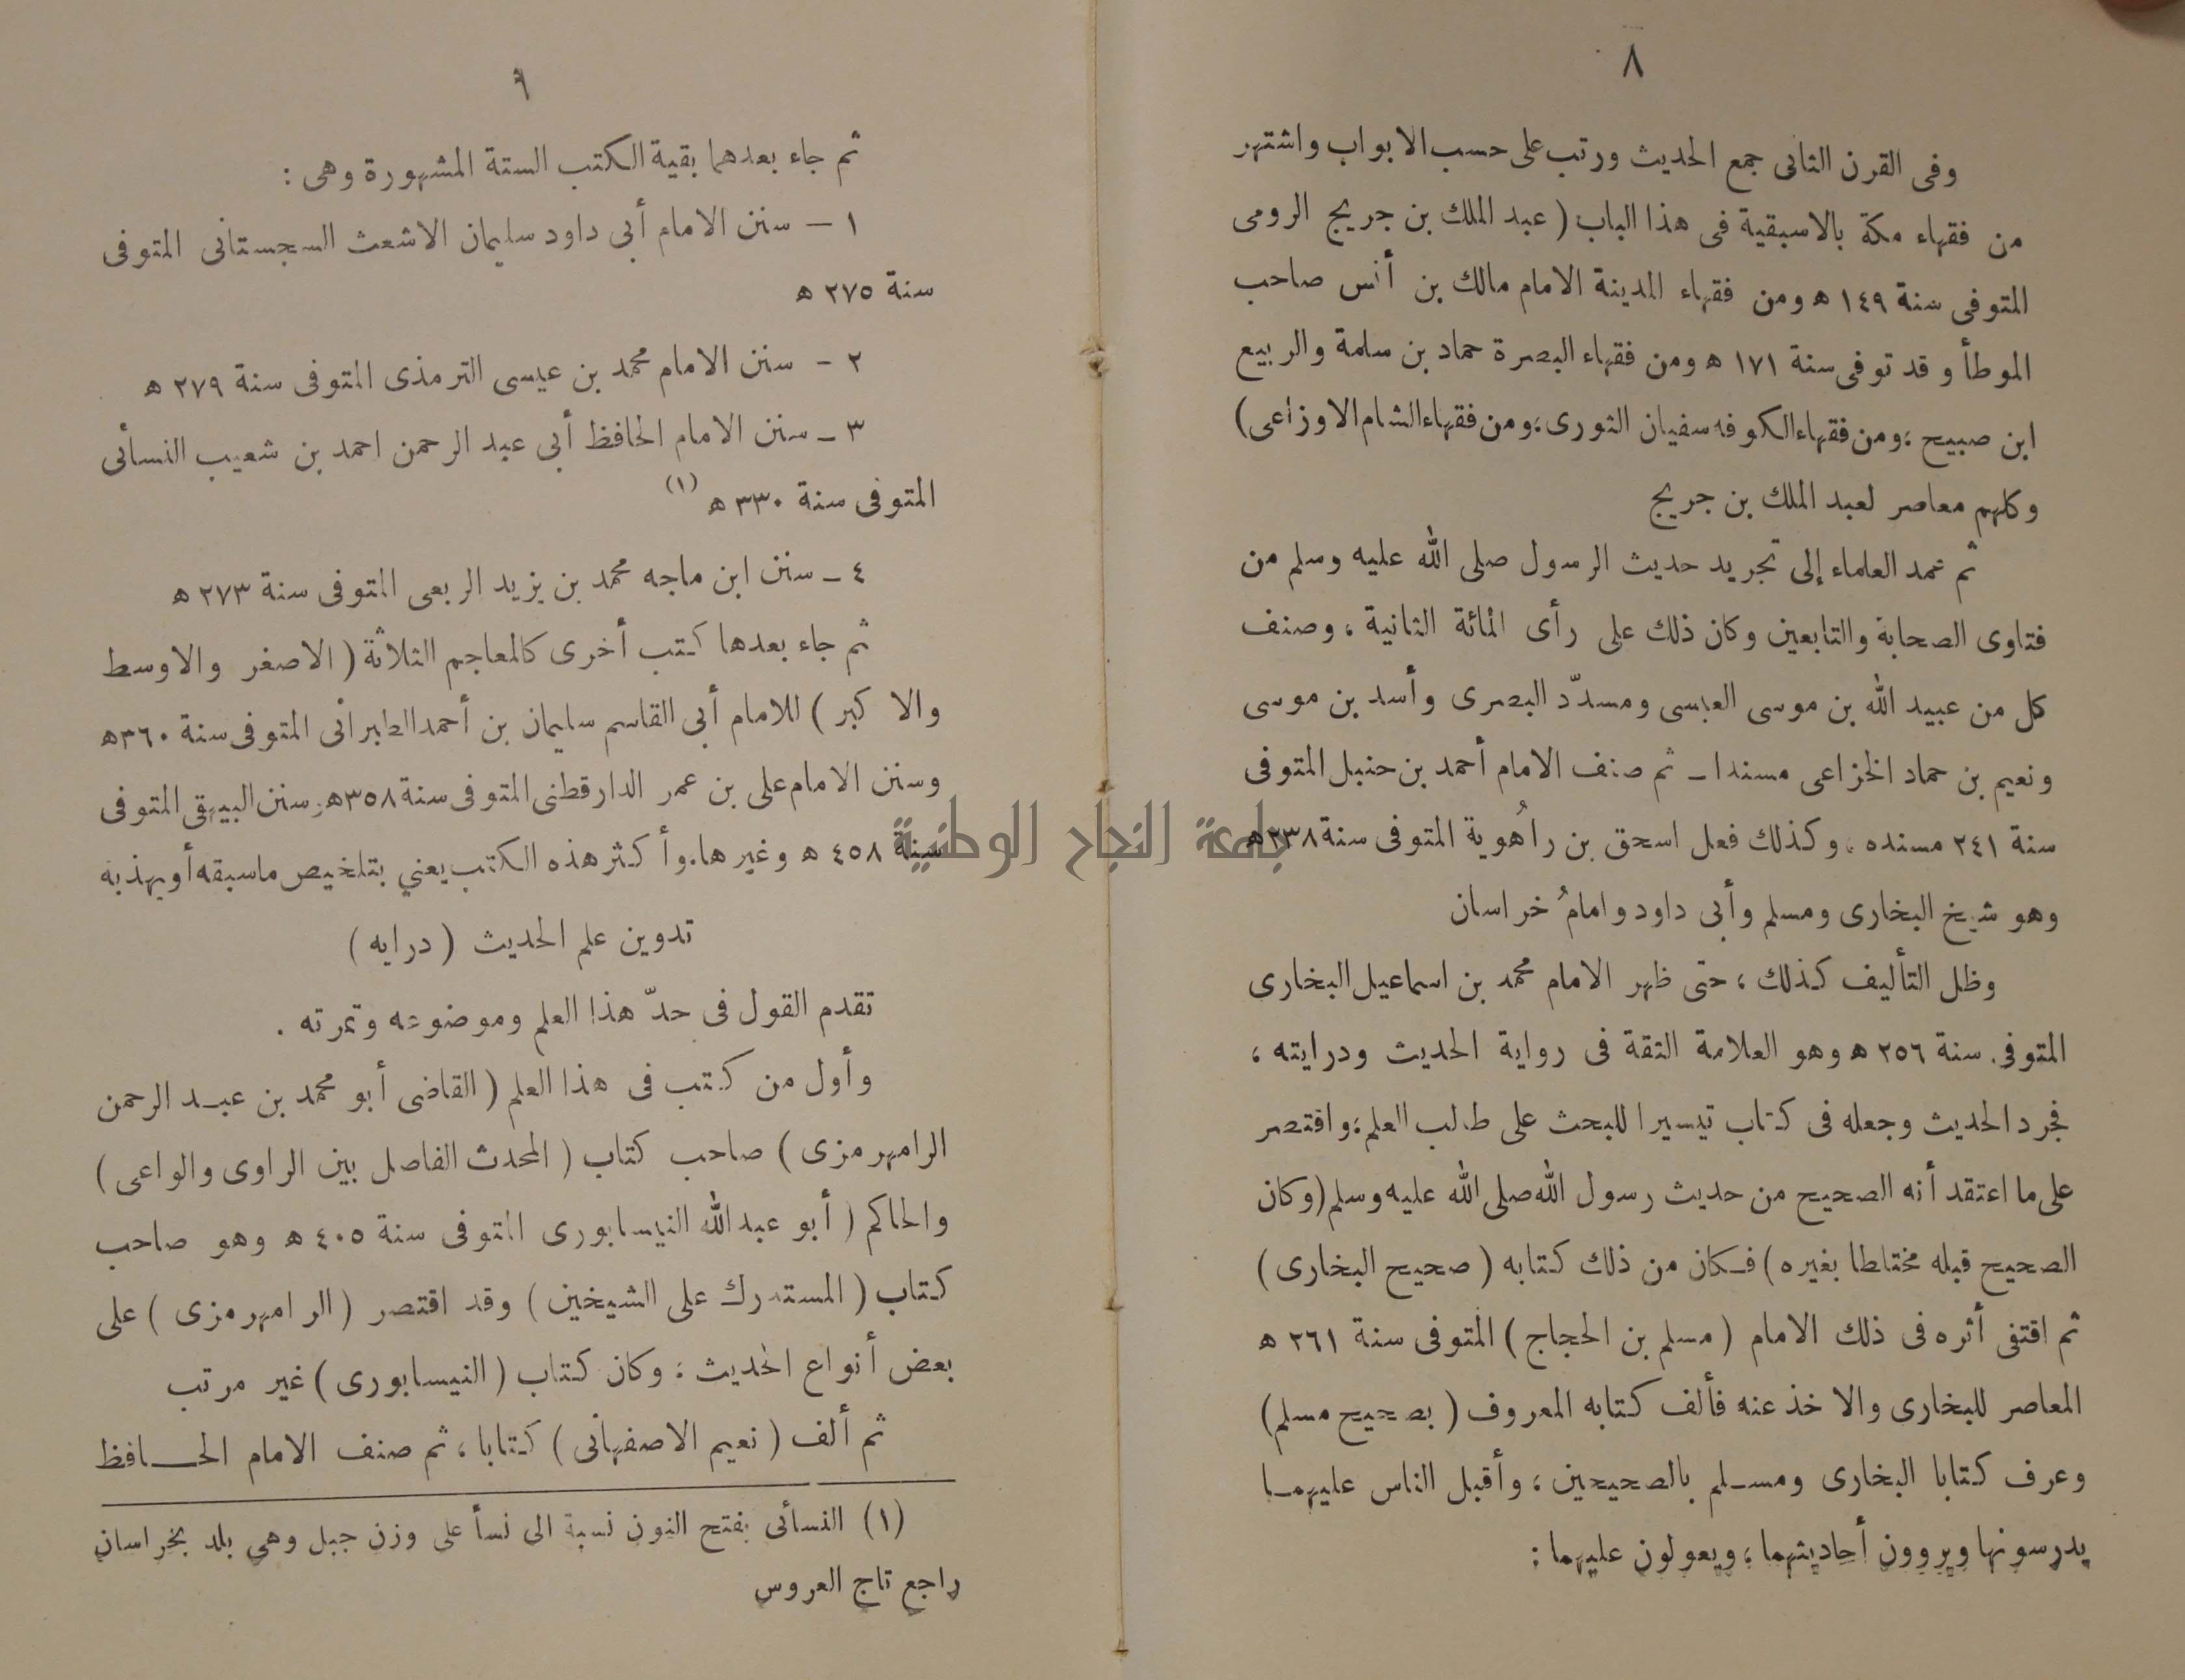 ٨
وفى القرن الثانى جمع الحديث ورتب على حسب الابواب واشتهر
من فقهاء مكة بالاسبقية فى هذا الباب ( عبد الملك بن جريج الرومى
المتوفى سنة ١٤٩ ھ ومن فقهاء المدينة الامام مالك بن أنس صاحب
الموطأ وقد توفى سنة ١٧١ ھ ومن فقهاء البصرة حماد بن سلمة والربيع
ابن صبيح ؛ ومن فقهاء الكوفه سفيان الثورى ؛ ومن فقهاء الشام الاوزاعى )
وكلهم معاصر لعبد الملك بن جريج
ثم عمد العلماء إلى تجريد حديث الرسول صلى الله عليه وسلم من
فتاوى الصحابة والتابعين وكان ذلك على رأى المائة الثانية ، وصنف
كل من عبيد الله بن موسى العبسى ومسدّد البصرى وأسد بن موسى
ونعيم بن حماد الخزاعى مسندا ــ ثم صنف الامام أحمد بن حنبل المتوفى
سنة ٢٤١ مسنده . وكذلك فعل اسحق بن راهُوية المتوفى سنة ٢٣٨ ھ
وهو شيخ البخارى ومسلم وأبى داود وامامُ خراسان
وظل التأليف كذلك ؛ حتى ظهر الامام محمد بن اسماعيل البخارى
المتوفى سنة ٢٥٦ ھ وهو العلامة الثقة فى رواية الحديث ودرايته ؛
فجرد الحديث وجعله فى كتاب تيسيرا للبحث على طالب العلم ؛ واقتصر
على ما اعتقد أنه الصحيح من حديث رسول الله صلى الله عليه وسلم ( وكان
الصحيح قبله مختلطا بغيره ) فكان من ذلك كتابه ( صحيح البخارى )
ثم اقتفى أثره فى ذلك الامام ( مسلم بن الحجاج ) المتوفى سنة ٢٦١ ھ
المعاصر للبخارى والاخذ عنه فألف كتابه المعروف ( بصحيح مسلم )
وعرف كتابا البخارى ومسلم بالصحيحين ؛ وأقبل الناس عليهما
يدرسونها ويروون أحاديثهما ؛ ويعولون عليهما :
٩
ثم جاء بعدهما بقية الكتب الستة المشهورة وهى :
١ — سنن الامام أبي داود سليمان الاشعث السجستانى المتوفى
سنة ٢٧٥ ھ
٢ - سنن الامام محمد بن عيسى الترمذى المتوفى سنة ٢٧٩ ھ
٣ ــ سنن الامام الحافظ أبي عبد الرحمن احمد بن شعيب النسأئى
المتوفى سنة ٣٣٠ ھ (١)
٤ ــ سنن ابن ماجه محمد بن يزيد الربعى المتوفى سنة ٢٧٣ ھ
ثم جاء بعدها كتب أخرى كالمعاجم الثلاثة ( الاصغر والاوسط
والاكبر ) للامام أبي القاسم سليمان بن أحمد الطبرانى المتوفى سنة ٣٦٠ ھ
وسنن الامام على بن عمر الدارقطنى المتوفى سنة ٣٥٨ ھ وسنن البيهقى المتوفى
سنة ٤٥٨ ھ وغيرها . وأكثر هذه الكتب يعني بتلخيص ما سبقه أو يهذبه
تدوين علم الحديث ( درايه )
تقدم القول فى حدّ هذا العلم وموضوعه وثمرته .
وأول من كتب فى هذا العلم ( القاضى أبو محمد بن عبد الرحمن
الرامهرمزى ) صاحب كتاب ( المحدث الفاصل بين الراوى والواعى )
والحاكم ( أبو عبد الله النيسابورى المتوفى سنة ٤٠٥ ھ وهو صاحب
كتاب ( المستدرك على الشيخين ) وقد اقتصر ( الرامهرمزى ) على
بعض أنواع الحديث ؛ وكان كتاب ( النيسابورى ) غير مرتب
ثم ألف ( نعيم الاصفهانى ) كتابا ، ثم صنف الامام الحافظ
(١) النسأئى بفتح النون نسبة الى نسأ على وزن جبل وهي بلد بخراسان
راجع تاج العروس
جامعة النجاح الوطنية